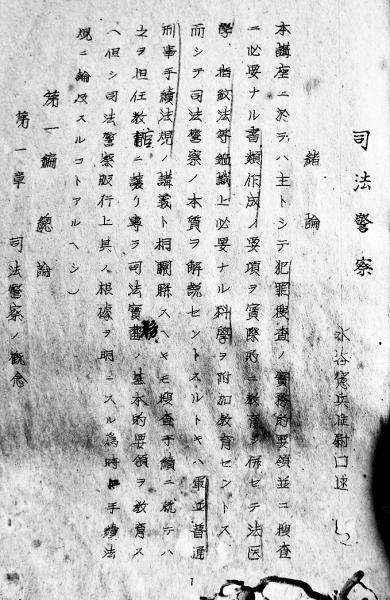 司法警察
水谷憲兵准尉口述
緒論
本講座ニ於テハ主トシテ犯罪捜査ノ實務的要領並ニ捜査
ニ必要ナル書類作成ノ要項ヲ實際的ニ教育シ併セテ法医
學、指紋法等鑑識上必要ナル科學ヲ附加教育セントス
而シテ司法警察ノ本質ヲ解説セントスルトキハ軍並普通
刑事手續法規ノ講義ト相關聯スヘキモ捜査手續ニ就テハ
之ヲ担任教官ニ譲リ專ラ司法實務ノ基本的要領ヲ教育ス
ヘ但シ司法警察職行上其ノ根據ヲ明ニスル為時ニ手續法
規ニ論及スルコトアルヘシ)
第一編 總論
第一章 司法警察ノ概念
1